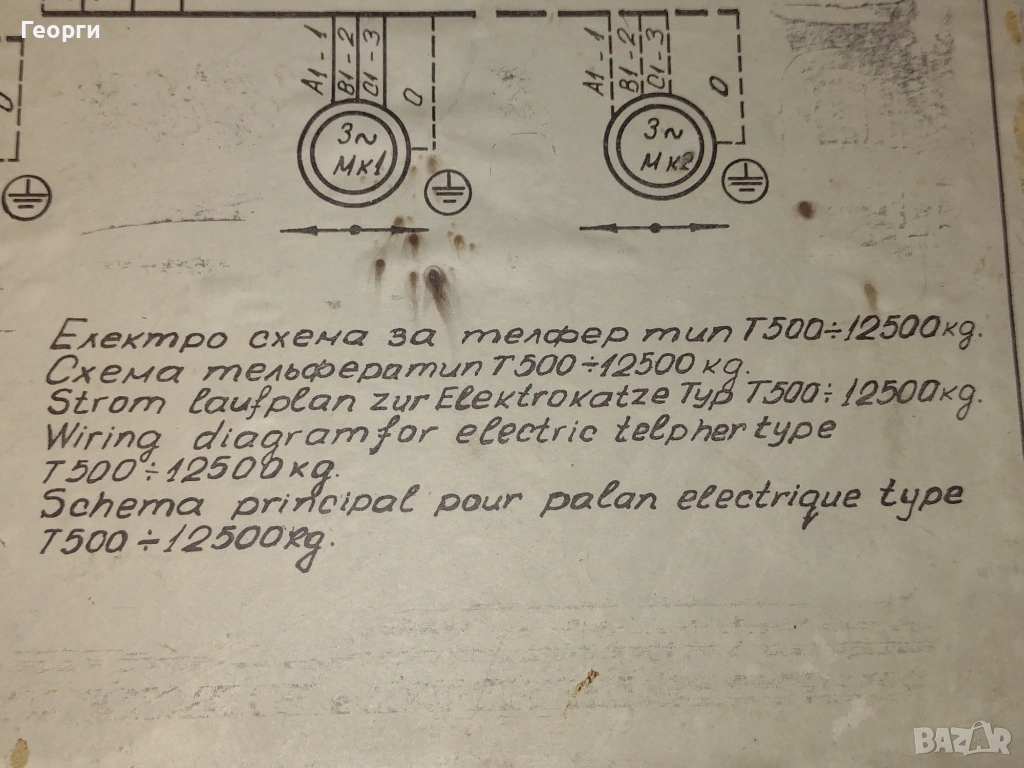 Георги
A1-1
B1-2
C1-3
0
A1-1
B1-2
C1-3
0
0
3~
Мк1
3~
Мк2
Електро схема за телфер тип Т500÷12500кg.
Схема тельфера тип Т500÷12500кg.
Strom laufplan zur Elektrokatze Typ T500÷12500кg.
Wiring diagram for electric telpher type
T500÷12500кg.
Schema principal pour palan electrique type
T500÷12500кg.
BAZAR